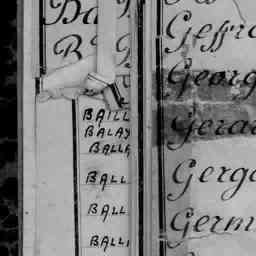 Ba
B
BAILL
BALAY
BALLA
BALL
BALL
BALLI
Geffr
Georg
Gerar
Gerga
Germ